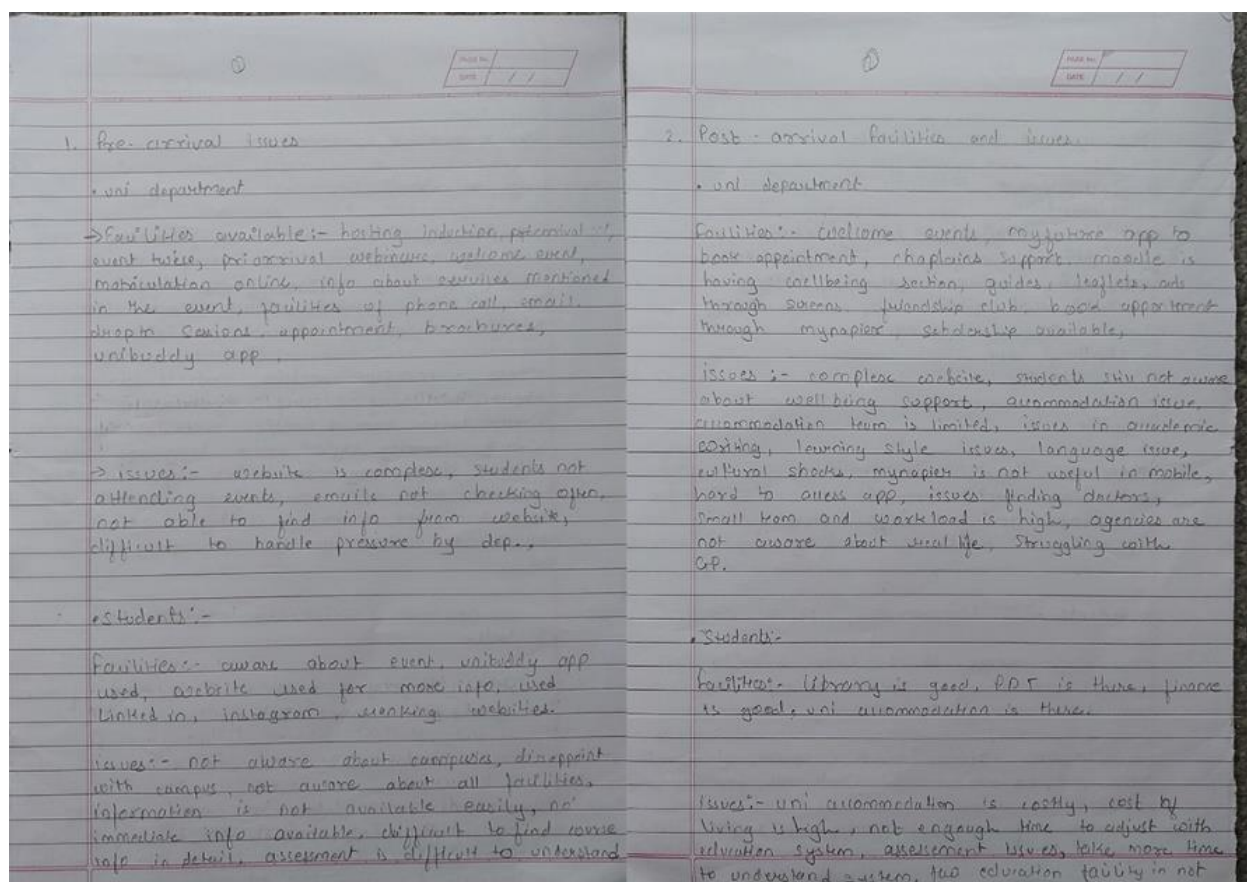 1
PAGE No.
DATE / /
1. Pre-arrival issues
• uni department
→ Facilities available:- hosting induction, prearrival
event twice, priorrival webinars, welcome event,
matriculation online, info about services mentioned
in the event, facilities of phone call, email,
dropin sesions, appointment, brochures,
unibuddy app.
→ issues:- website is complex, students not
attending events, emails not checking often,
not able to find info from website,
difficult to handle pressure by dep.,
• Students:-
Facilities:- aware about event, unibuddy app
used, website used for more info, used
Linked in, instagram, ranking websites.
issues:- not aware about campuses, disappoint
with campus, not aware about all facilities,
information is not available easily, no
immediate info available, difficult to find course
info in detail, assessment is difficult to understand
2
PAGE No.
DATE / /
2. Post - arrival facilities and issues.
• uni department
facilities:- welcome events, myfuture app to
book appointment, chaplains support, moodle is
having wellbeing section, guides, leaflets, ads
through screens, friendship club, book appointment
through mynapier, scholarship available,
issues:- complex website, students still not aware
about well being support, accommodation issue,
accommodation team is limited, issues in academic
writing, learning style issues, language issue,
cultural shocks, mynapier is not useful in mobile,
hard to access app, issues finding doctors,
small team and workload is high, agencies are
not aware about real life, struggling with
GP.
• Students:-
facilities:- Library is good, is there, finance
is good, uni accommodation is there.
issues:- uni accommodation is costly, cost of
living is high, not engough time to adjust with
education system, assessement issues, take more time
to understand system, education facility in not